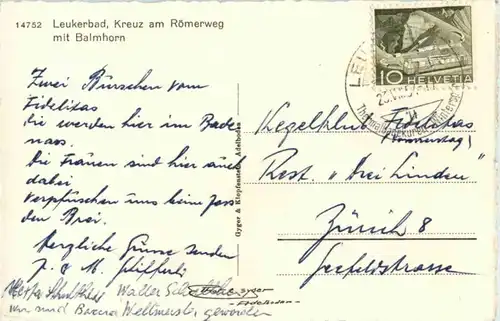 14752 Leukerbad, Kreuz am Römerweg
mit Balmhorn
Zwei Burschen vom
Fidelitas
die werden hier im Bade
nass.
Die Frauen sind hier auch
dabei
verpfuschen uns keine
den Brei.
Herzliche Grüsse senden
J. & M. Pfifferli
Walter
wir sind Weltmeister geworden
Gyger & Klopfenstein, Adelboden
10 HELVETIA
LEU
Kegelklub Fidelitas
(Donnerstag)
Rest. "Drei Linden"
Zürich 8
Seefeldstrasse
gyger
Adelboden